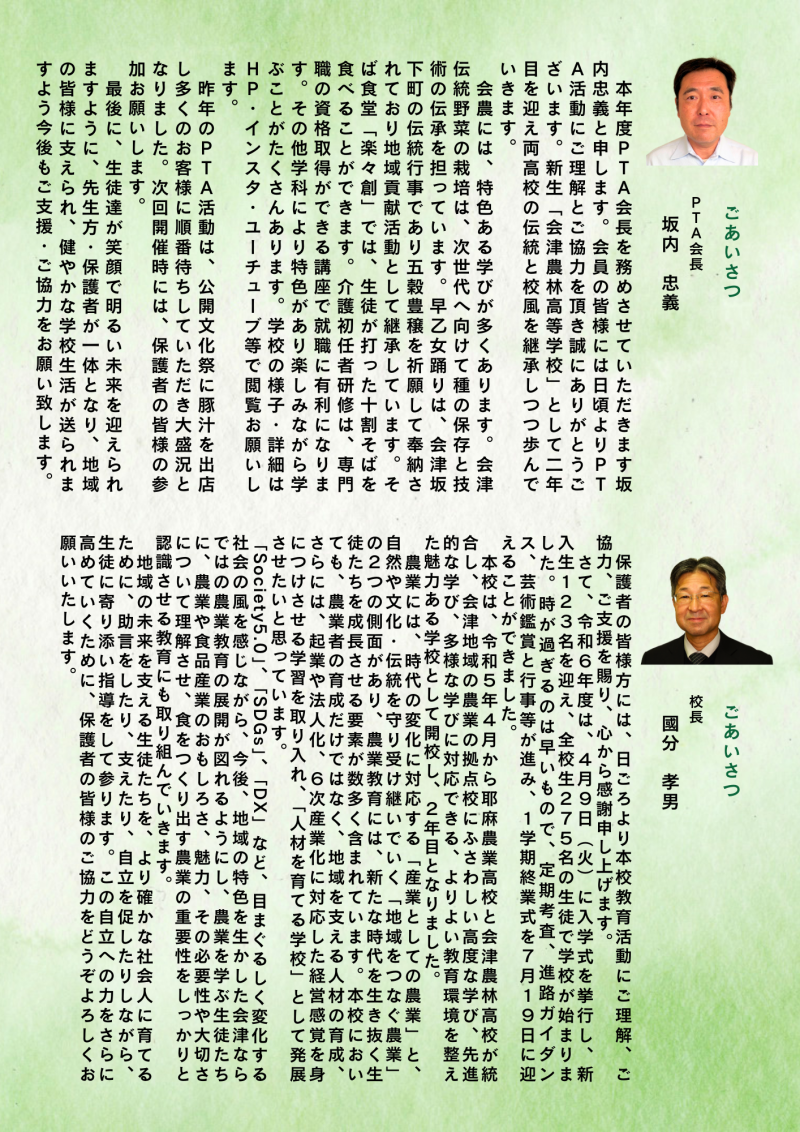 ごあいさつ
PTA会長
坂内 忠義
本年度PTA会長を務めさせていただきます坂
内忠義と申します。会員の皆様には日頃よりPT
A活動にご理解とご協力を頂き誠にありがとうご
ざいます。新生「会津農林高等学校」として二年
目を迎え両高校の伝統と校風を継承しつつ歩んで
いきます。
会農には、特色ある学びが多くあります。会津
伝統野菜の栽培は、次世代へ向けて種の保存と技
術の伝承を担っています。早乙女踊りは、会津坂
下町の伝統行事であり五穀豊穣を祈願して奉納さ
れており地域貢献活動として継承しています。そ
ば食堂「楽々創」では、生徒が打った十割そばを
食べることができます。介護初任者研修は、専門
職の資格取得ができる講座で就職に有利になりま
す。その他学科により特色があり楽しみながら学
ぶことがたくさんあります。学校の様子・詳細は
HP・インスタ・ユーチューブ等で閲覧お願いし
ます。
昨年のPTA活動は、公開文化祭に豚汁を出店
し多くのお客様に順番待ちしていただき大盛況と
なりました。次回開催時には、保護者の皆様の参
加お願いします。
最後に、生徒達が笑顔で明るい未来を迎えられ
ますように、先生方・保護者が一体となり、地域
の皆様に支えられ、健やかな学校生活が送られま
すよう今後もご支援・ご協力をお願い致します。
ごあいさつ
校長
國分 孝男
保護者の皆様方には、日ごろより本校教育活動にご理解、ご
協力、ご支援を賜り、心から感謝申し上げます。
さて、令和6年度は、4月9日(火)に入学式を挙行し、新
入生123名を迎え、全校生275名の生徒で学校が始まりま
した。時が過ぎるのは早いもので、定期考査、進路ガイダン
ス、芸術鑑賞と行事等が進み、1学期終業式を7月19日に迎
えることができました。
本校は、令和5年4月から耶麻農業高校と会津農林高校が統
合し、会津地域の農業の拠点校にふさわしい高度な学び、先進
的な学び、多様な学びに対応できる、よりよい教育環境を整え
た魅力ある学校として開校し、2年目となりました。
農業には、時代の変化に対応する「産業としての農業」と、
自然や文化・伝統を守り受け継いでいく「地域をつなぐ農業」
の2つの側面があり、農業教育には、新たな時代を生き抜く生
徒たちを成長させる要素が数多く含まれています。本校におい
ても、農業者の育成だけではなく、地域を支える人材の育成、
さらには、起業や法人化、6次産業化に対応した経営感覚を身
につけさせる学習を取り入れ、「人材を育てる学校」として発展
させたいと思っています。
「Society5.0」、「SDGs」、「DX」など、目まぐるしく変化する
社会の風を感じながら、今後、地域の特色を生かした会津なら
ではの農業教育の展開が図れるようにし、農業を学ぶ生徒たち
に、農業や食品産業のおもしろさ、魅力、その必要性や大切さ
について理解させ、食をつくり出す農業の重要性をしっかりと
認識させる教育にも取り組んでいきます。
地域の未来を支える生徒たちを、より確かな社会人に育てる
ために、助言をしたり、支えたり、自立を促したりしながら、
生徒に寄り添い指導をして参ります。この自立への力をさらに
高めていくために、保護者の皆様のご協力をどうぞよろしくお
願いいたします。